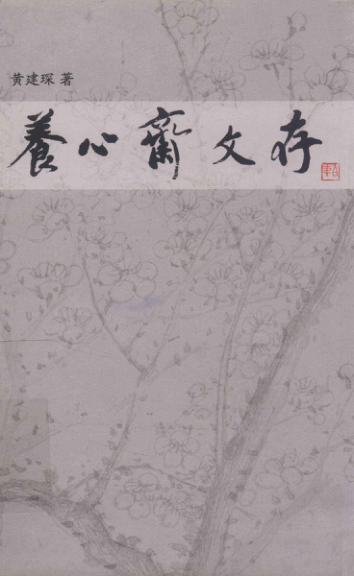 黄建琛 著
養心齋文存